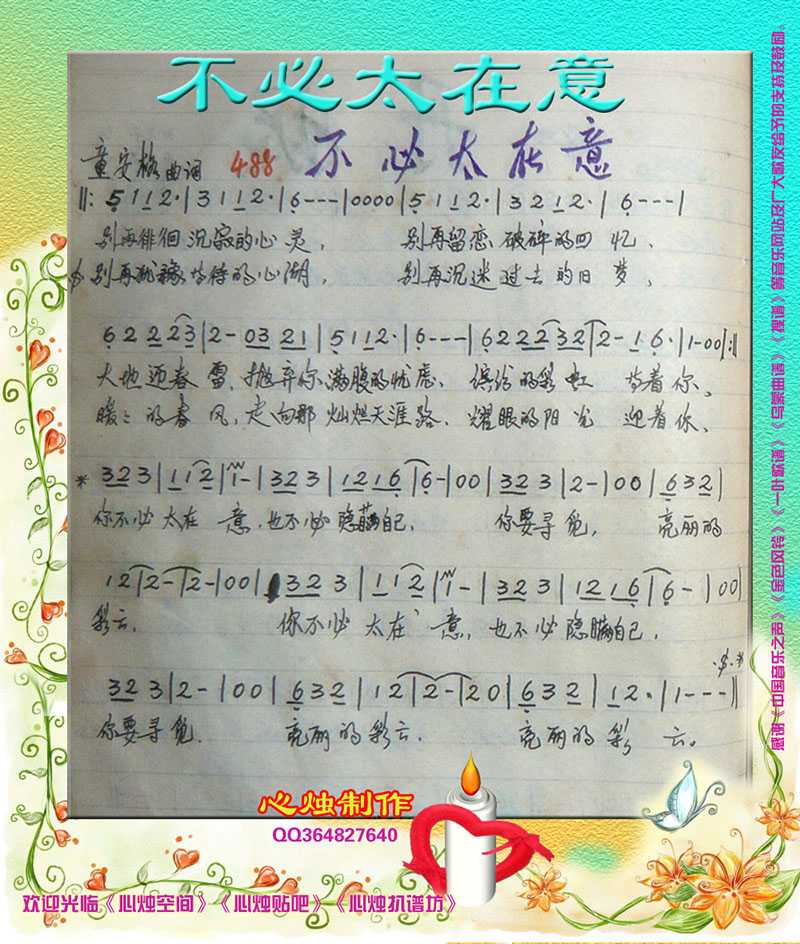 不必太在意
童安格曲词 488 不必太在意
‖: 5 1 1 2· | 3 1 1 2· | 6 - - - | 0 0 0 0 | 5 1 1 2· | 3 2 1 2· | 6 - - - |
别再徘徊沉寂的心灵, 别再留恋破碎的回忆、
别再 等待的心湖, 别再沉迷过去的旧梦,
6 2 2 2 2 3 | 2 - 0 3 2 1 | 5 1 1 2· | 6 - - - | 6 2 2 2 3 2 | 2 - 1 6· | 1 - 0 0 :‖
大地迎春雷,抛弃你满腹的忧虑、缤纷的彩虹 等着你、
暖暖的春风,走向那灿烂天涯路、耀眼的阳光 迎着你、
* 3 2 3 | 1 1 2 | 1 - | 3 2 3 | 1 2 1 6 | 6 - | 0 0 | 3 2 3 | 2 - | 0 0 | 6 3 2 |
你不必太在意,也不必隐瞒自己、 你要寻觅, 亮丽的
1 2 | 2 - | 2 - | 0 0 | 3 2 3 | 1 1 2 | 1 - | 3 2 3 | 1 2 1 6 | 6 - | 0 0 |
彩云、 你不必太在意,也不必隐瞒自己,
3 2 3 | 2 - | 0 0 | 6 3 2 | 1 2 | 2 - | 2 0 | 6 3 2 | 1 2· | 1 - - - ‖
你要寻觅、 亮丽的彩云、 亮丽的彩云。
心烛制作
QQ364827640
欢迎光临《心烛空间》《心烛贴吧》《心烛扒谱坊》
感谢《中国音乐之声》《金色风铃》《一叶枫谱》《乌蒙曲谱》《搜谱》等音乐网站及广大歌友给予的支持及鼓励。